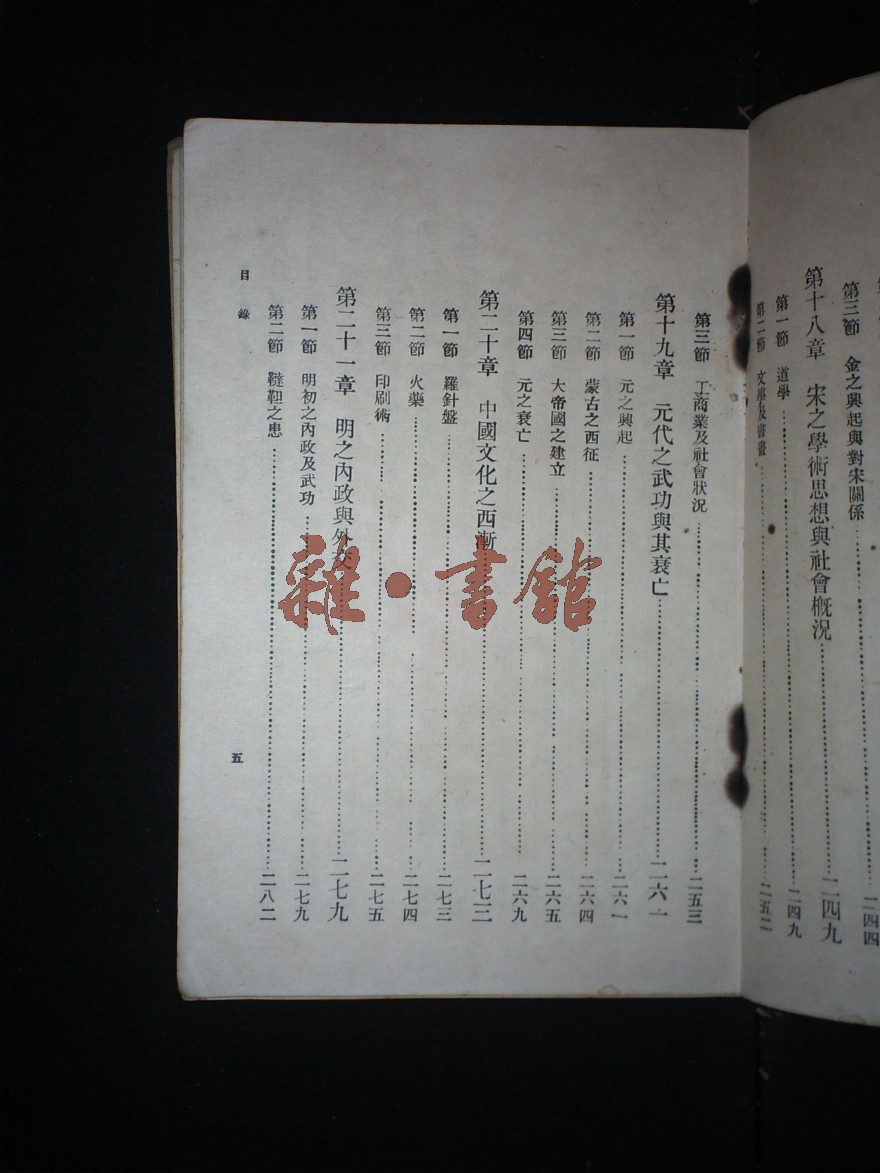 第三節 金之興起與對宋關係 二四四
第十八章 宋之學術思想與社會概況 二四九
第一節 道學 二四九
第二節 文學及書畫 二五二
第三節 工商業及社會狀況 二五三
第十九章 元代之武功與其衰亡 二六一
第一節 元之興起 二六一
第二節 蒙古之西征 二六四
第三節 大帝國之建立 二六五
第四節 元之衰亡 二六九
第二十章 中國文化之西漸 二七三
第一節 羅針盤 二七三
第二節 火藥 二七四
第三節 印刷術 二七五
第二十一章 明之內政與外交 二七九
第一節 明初之內政及武功 二七九
第二節 韃靼之患 二八二
目錄
五
雜·書館